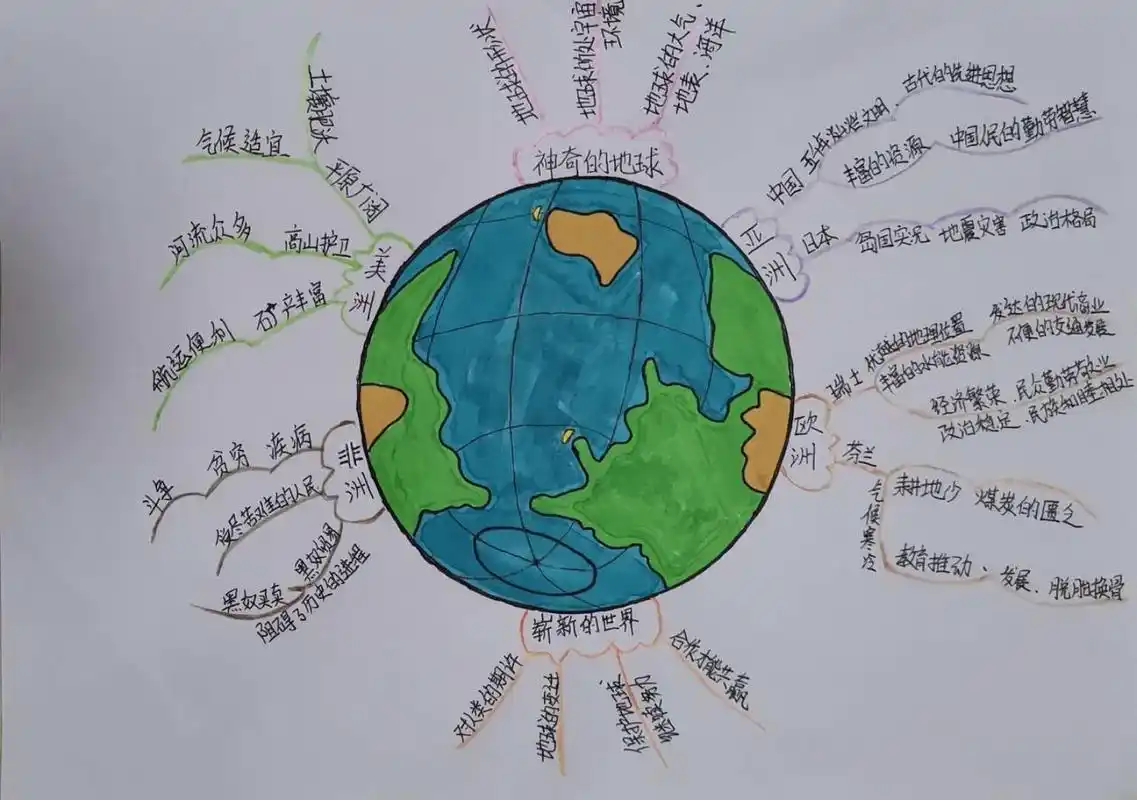 神奇的地球
地球的形状
地球所处宇宙
环境
地球的大气、
地表、海洋
亚洲
中国
五千年灿烂文明、
古代的先进思想
丰富的资源
中国人民的勤劳智慧
日本
岛国实况
地震灾害
政治格局
欧洲
瑞士
优越的地理位置
丰富的水能资源
发达的现代商业
不便的交通发展
经济繁荣、民众勤劳敬业
政治稳定、民族和睦相处
芬兰
气候寒冷
耕地少
煤炭的匮乏
教育推动、
发展、脱胎换骨
崭新的世界
对人类的期许
地球的变迁
保护地球、
合作才能共赢
非洲
疾病
贫穷
斗争
饱尽苦难的人民
黑奴贸易
黑奴买卖
阻碍了历史的进程
美洲
平原广阔
土壤肥沃
气候适宜
高山护卫
河流众多
矿产丰富
航运便利